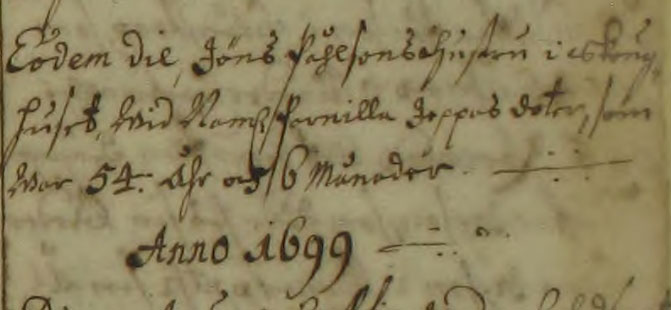 Eodem die, Jöns Påhlsons Hustru i Skoug
huset, wid Nampn Pernilla Jeppas doter, som
war 54. Åhr och 6 Månader.
Anno 1699